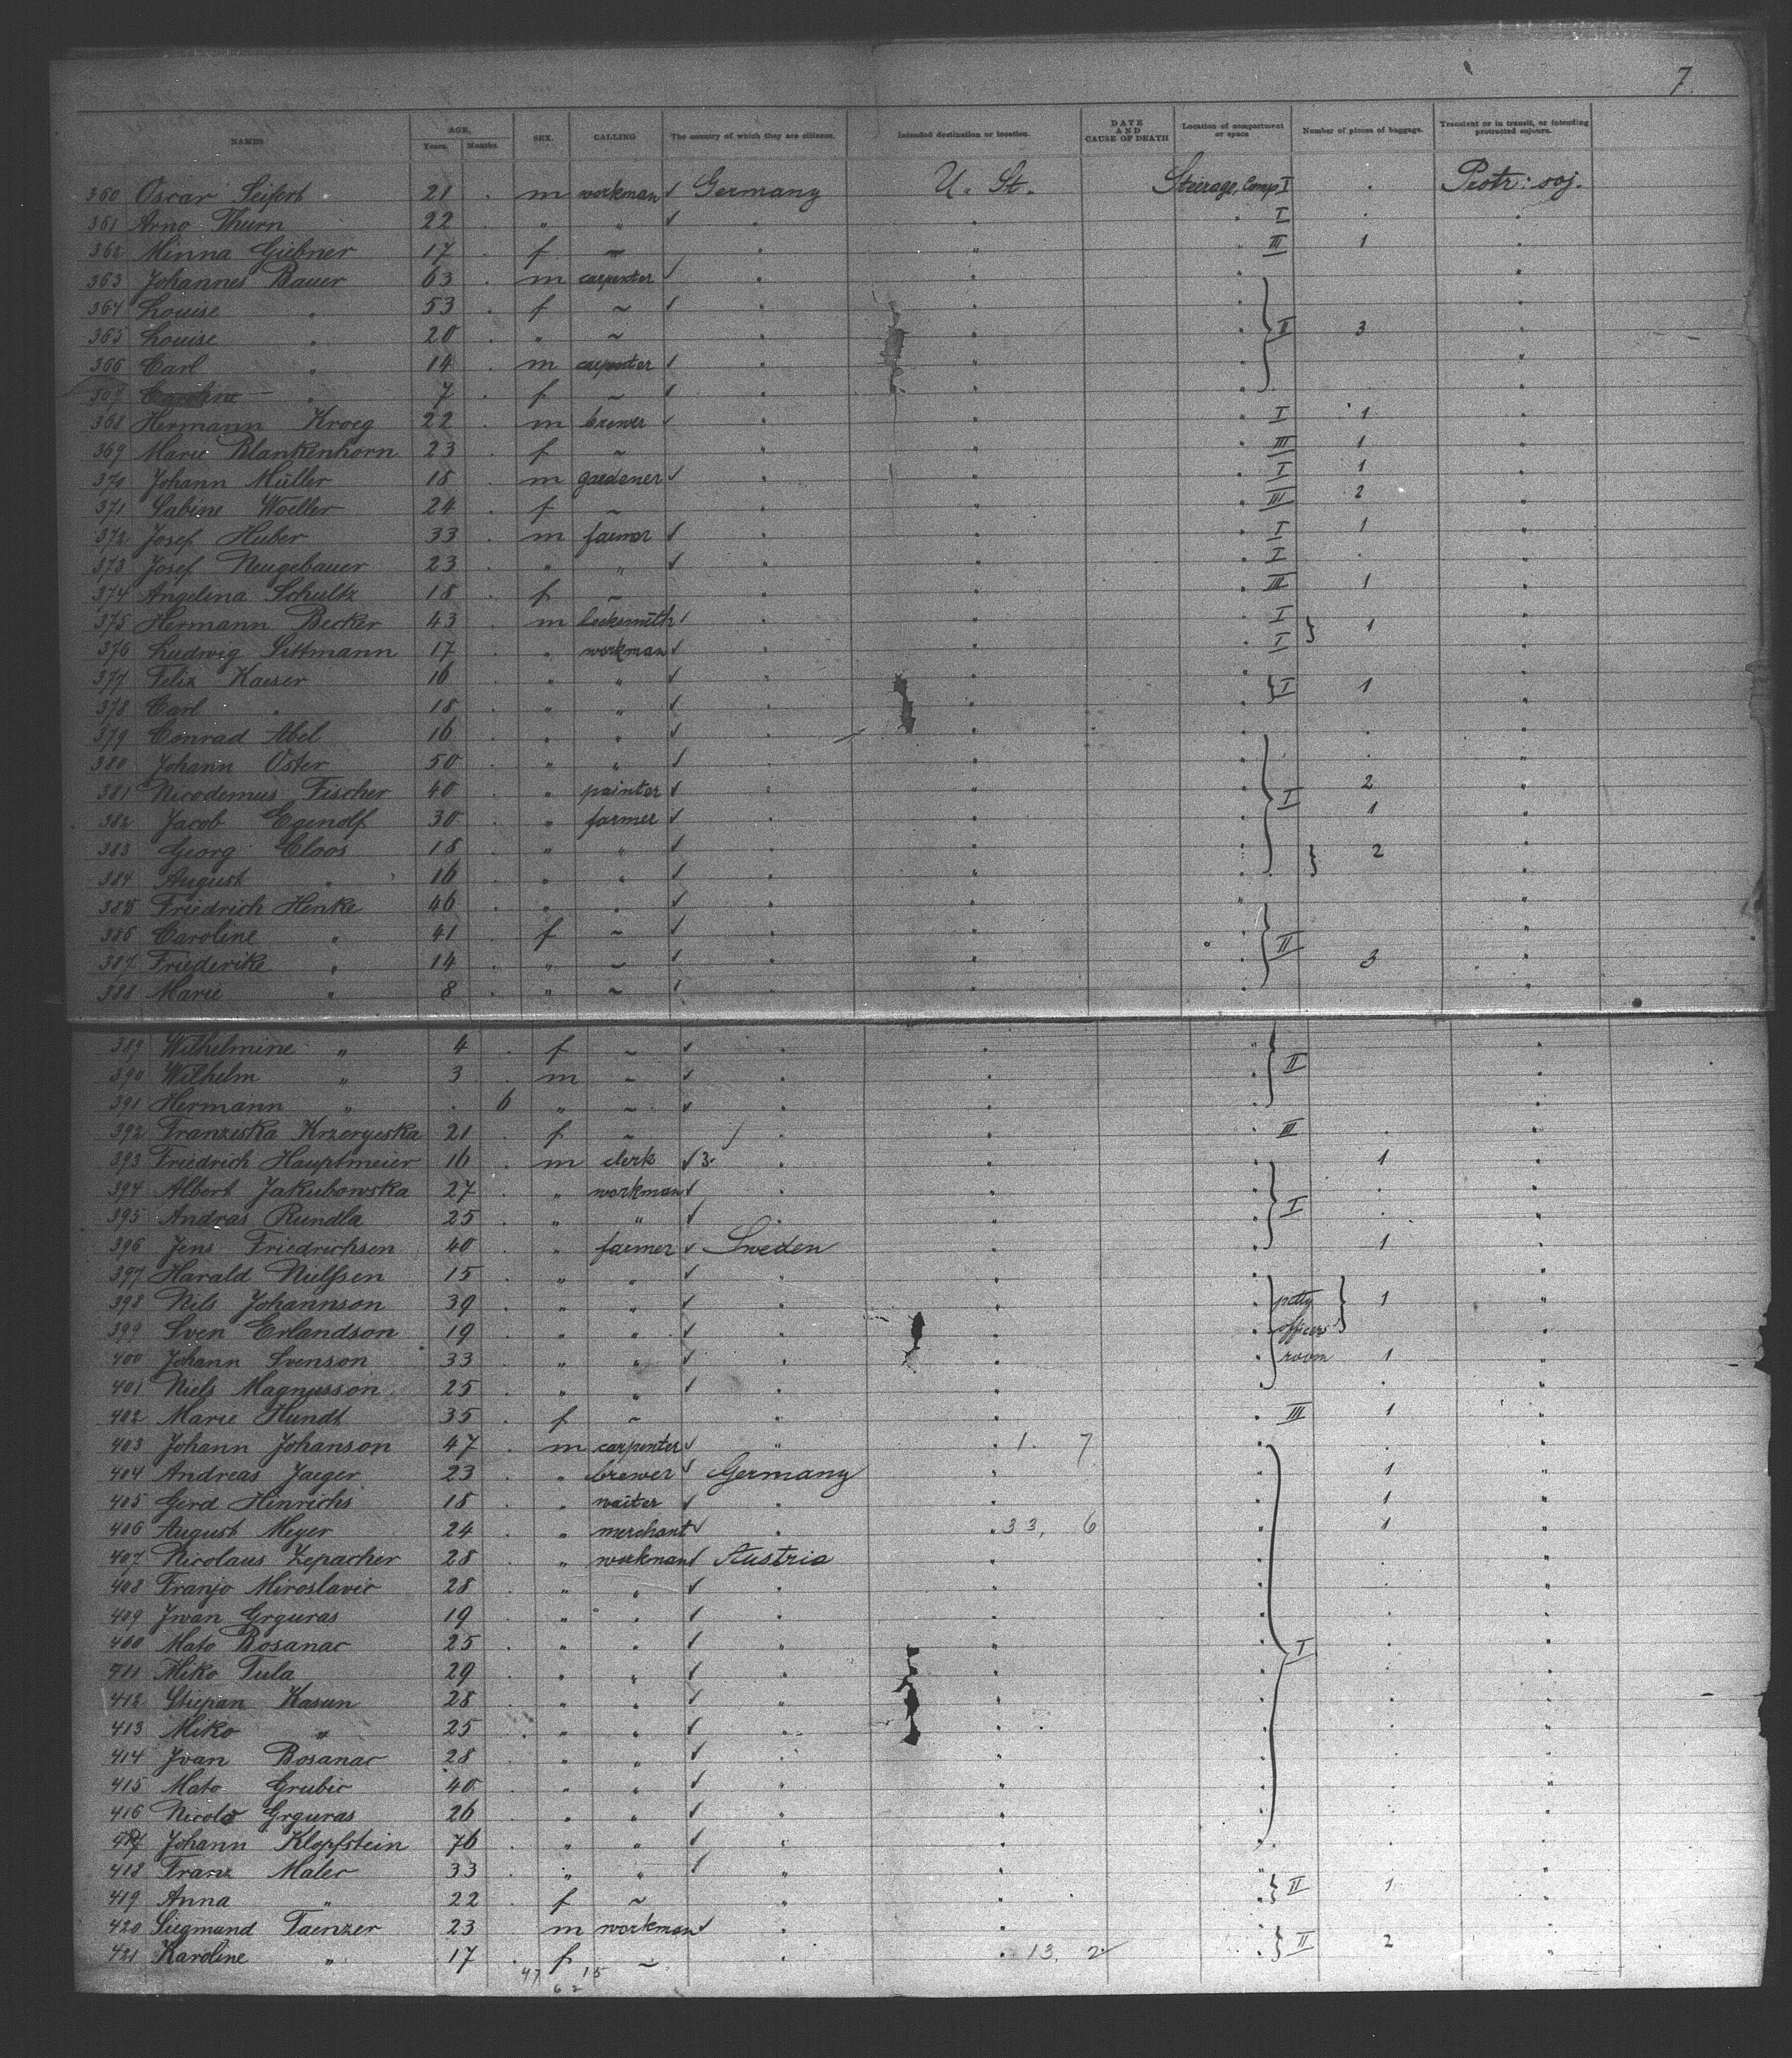 7
NAMES AGE. SEX. CALLING The country of which they are citizens. Intended destination or location. DATE AND CAUSE OF DEATH Location of compartment or space Number of pieces of baggage. Transient or in transit, or intending protracted sojourn.
Years. Months.
360 Oscar Seifert 21 . m workman ✓ Germany U. St. Steerage, Comp. I . Protr: soj.
361 Arno Thurn 22 . " " ✓ " " " I . "
362 Minna Giebner 17 . f ~ " " " III 1 "
363 Johannes Bauer 63 . m carpenter ✓ " " " "
364 Louise " 53 . f ~ ✓ " " " "
365 Louise " 20 . " ~ " " " } II 3 "
366 Carl " 14 . m carpenter ✓ " " " "
367 Caroline " 7 . f ~ ✓ " " " "
368 Hermann Kroeg 22 . m brewer ✓ " " " I 1 "
369 Marie Blankenhorn 23 . f ~ " " " III 1 "
370 Johann Müller 18 . m gardener ✓ " " " I 1 "
371 Sabine Woeller 24 . f ~ " " " III 2 "
372 Josef Huber 33 . m farmer ✓ " " " I 1 "
373 Josef Neugebauer 23 . " " ✓ " " " I . "
374 Angelina Schultz 18 . f ~ " " " III 1 "
375 Hermann Becker 43 . m locksmith ✓ " " " I } 1 "
376 Ludwig Sittmann 17 . " workman ✓ " " " I "
377 Felix Kaeser 16 . " " ✓ " " " } I 1 "
378 Carl " 18 . " " ✓ " " " "
379 Conrad Abel 16 . " " ✓ " " " . "
380 Johann Oster 50 . " " ✓ " " " . "
381 Nicodemus Fischer 40 . " painter ✓ " " " } I 2 "
382 Jacob Egendlf 30 . " farmer ✓ " " " 1 "
383 Georg Cloos 18 . " " ✓ " " " } 2 "
384 August " 16 . " " ✓ " " " "
385 Friedrich Henke 46 . " " ✓ " " " "
386 Caroline " 41 . f ~ ✓ " " " } II "
387 Friederike " 14 . " ~ ✓ " " " 3 "
388 Marie " 8 . " ~ ✓ " " " "
389 Wilhelmine " 4 . f ~ ✓ " " " } II "
390 Wilhelm " 3 . m ~ ✓ " " " "
391 Hermann " . 6 " ~ ✓ " " " "
392 Franziska Krzeryeska 21 . f ~ " " " III . "
393 Friedrich Hauptmeier 16 . m clerk ✓ 3. " " " 1 "
394 Albert Jakubowska 27 . " workman ✓ " " } I . "
395 Andras Rundla 25 . " " ✓ " " " . "
396 Jens Friedrichsen 40 . " farmer ✓ Sweden " " 1 "
397 Harald Nielssen 15 . " " ✓ " " " "
398 Nils Johannson 39 . " " ✓ " " " } petty } 1 "
399 Sven Erlandson 19 . " " ✓ " " " officers "
400 Johann Svenson 33 . " " ✓ " " " room 1 "
401 Niels Magnusson 25 . " " ✓ " " " . "
402 Marie Hundt 35 . f ~ " " " III 1 "
403 Johann Johanson 47 . m carpenter ✓ " " 1. 7 " . "
404 Andreas Jaeger 23 . " brewer ✓ Germany " " 1 "
405 Gerd Hinrichs 18 . " waiter ✓ " " " 1 "
406 August Meyer 24 . " merchant ✓ " " 33, 6 " 1 "
407 Nicolaus Zepacher 28 . " workman ✓ Austria " " . "
408 Franjo Miroslavic 28 . " " ✓ " " " . "
409 Iwan Grguras 19 . " " ✓ " " " . "
400 Mato Bosanac 25 . " " ✓ " " " } I . "
411 Miko Tula 29 . " " ✓ " " " . "
412 Stiepan Kasun 28 . " " ✓ " " " . "
413 Miko " 25 . " " ✓ " " " . "
414 Ivan Bosanac 28 . " " ✓ " " " . "
415 Mato Grubic 40 . " " ✓ " " " . "
416 Nicolo Grguras 26 . " " ✓ " " " . "
417 Johann Klopfstein 76 . " " ✓ " " " . "
418 Franz Maler 33 . " " ✓ " " " "
419 Anna " 22 . f ~ " " " } II 1 "
420 Siegmund Taenzer 23 . m workman ✓ " " " "
421 Karoline " 17 . f ~ " " 13, 2 " } II 2 "
47 15
62